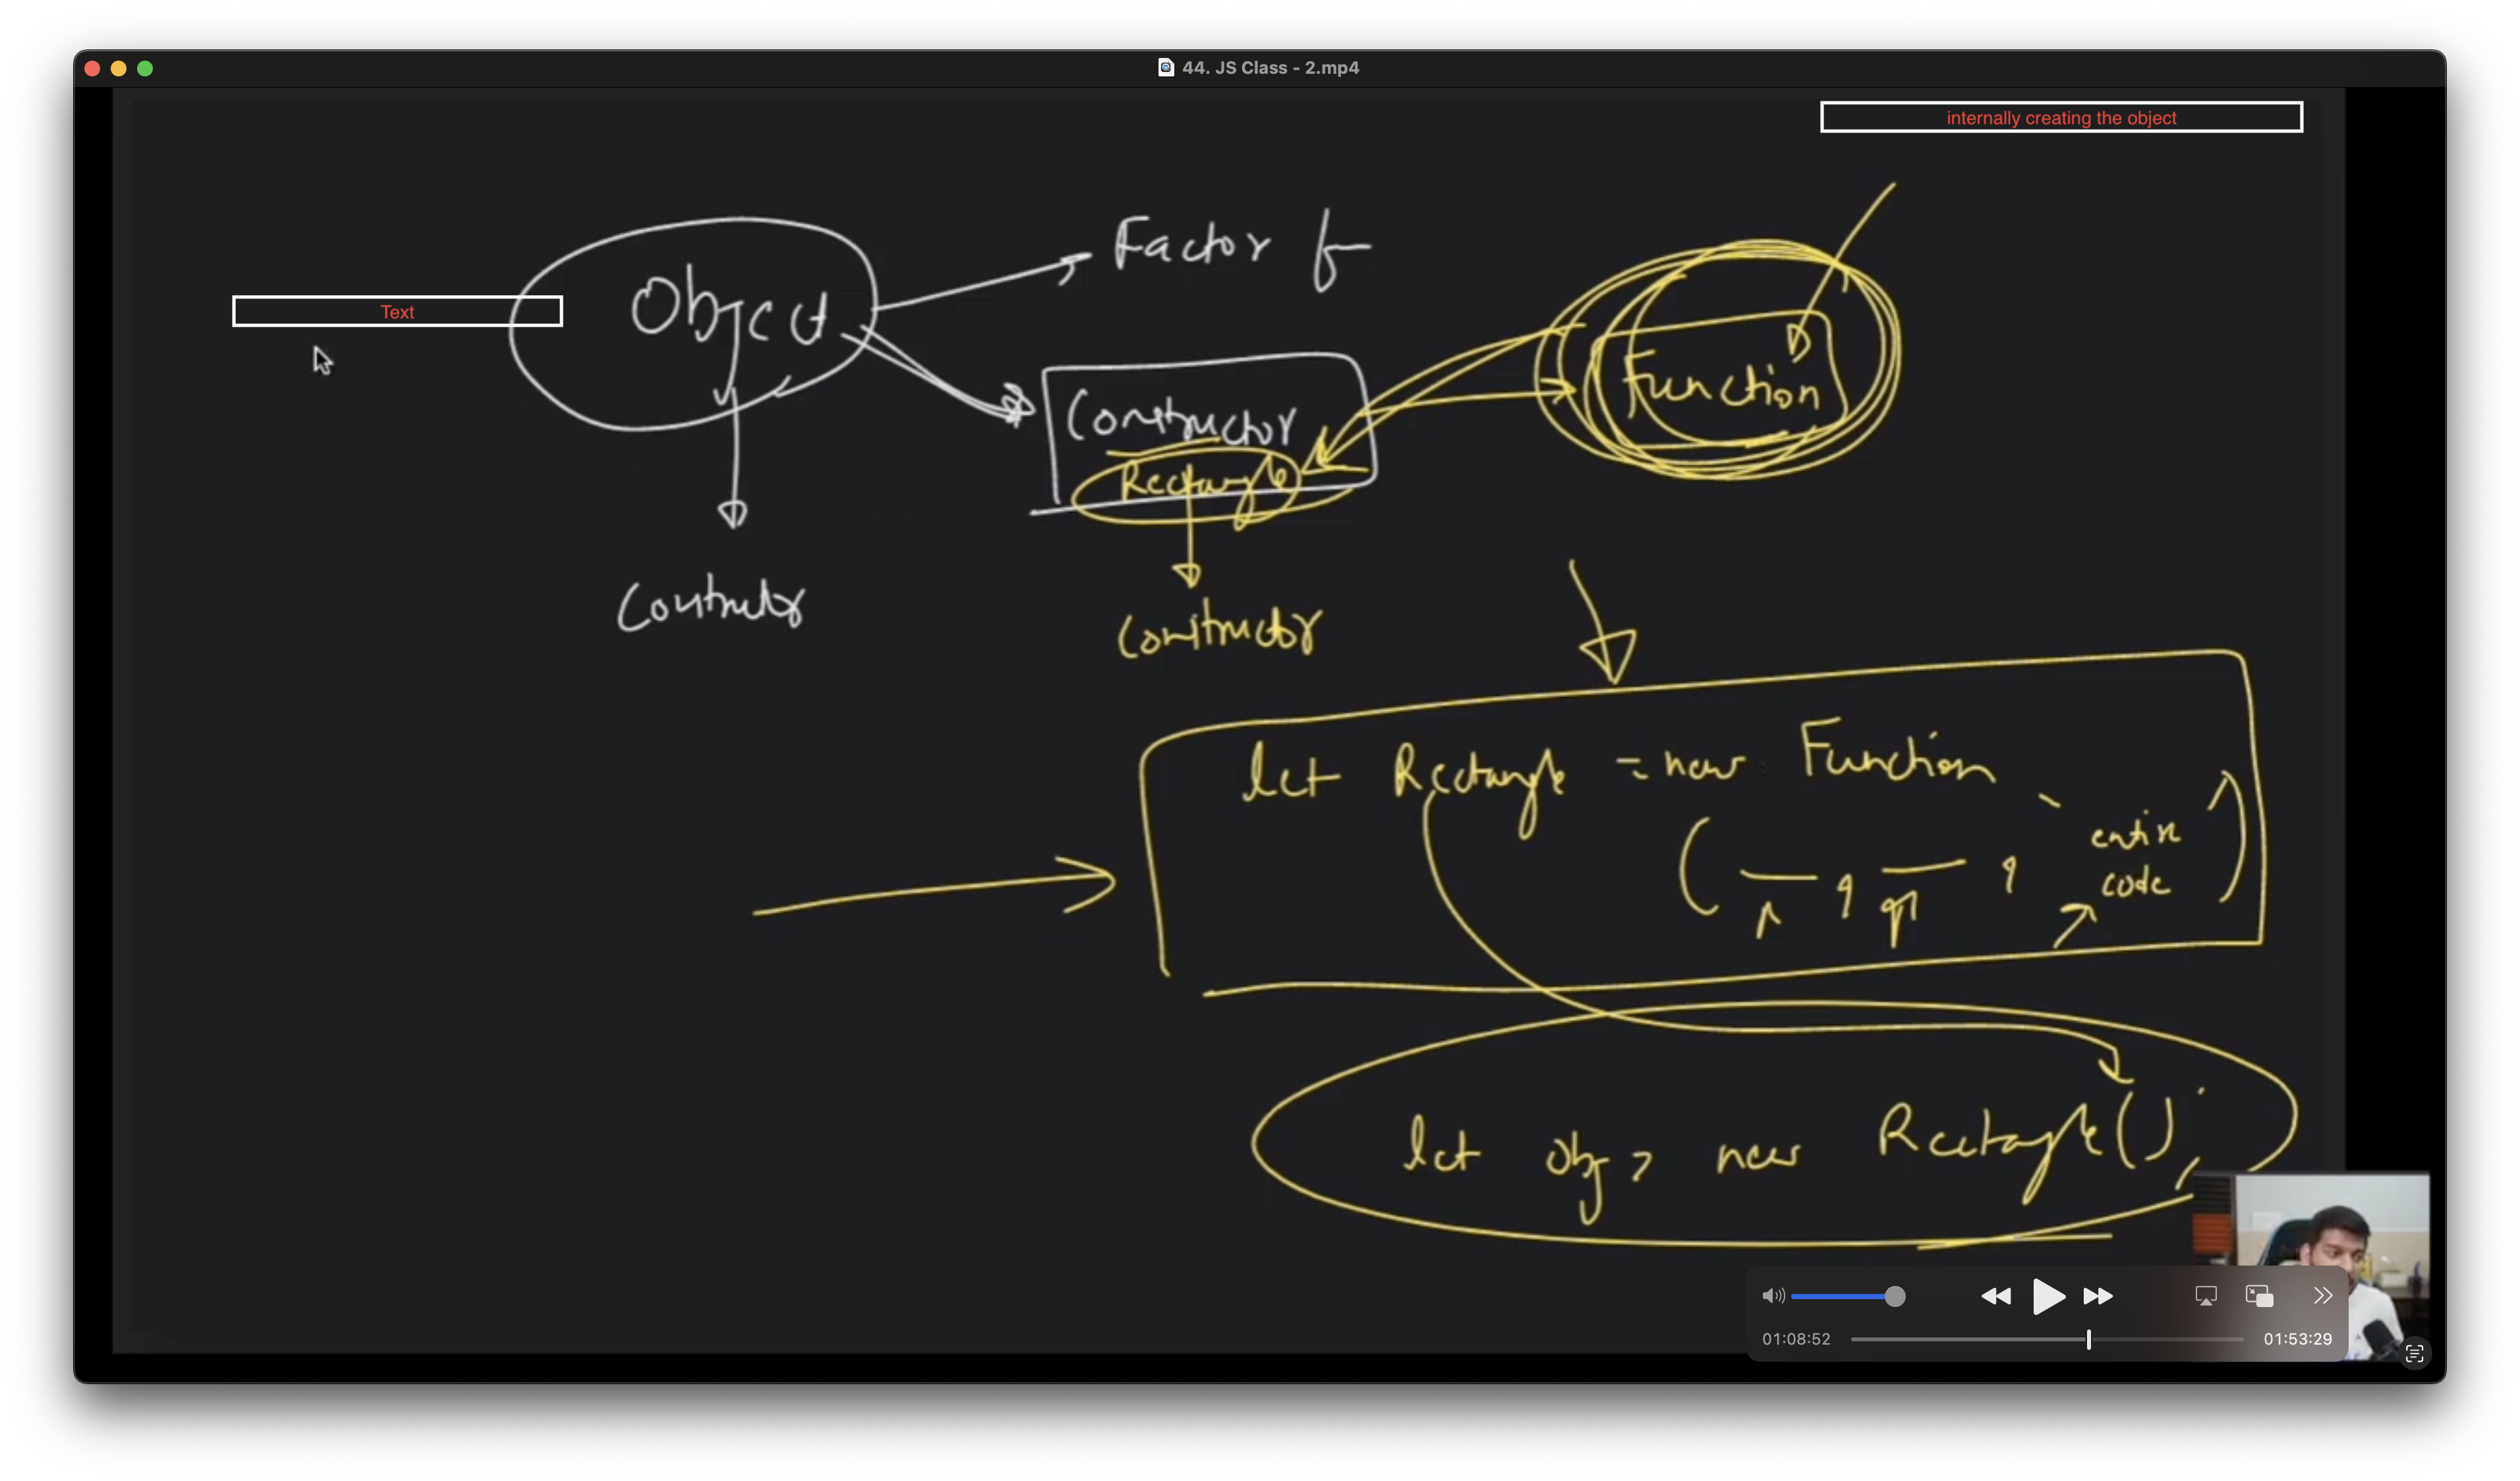 44. JS Class - 2.mp4
internally creating the object
Factor fn
Text
Object
Function
Constructor
Rectangle
Constructor
let Rectangle = new Function
( , , entire
code )
let obj = new Rectangle();
01:08:52
01:53:29